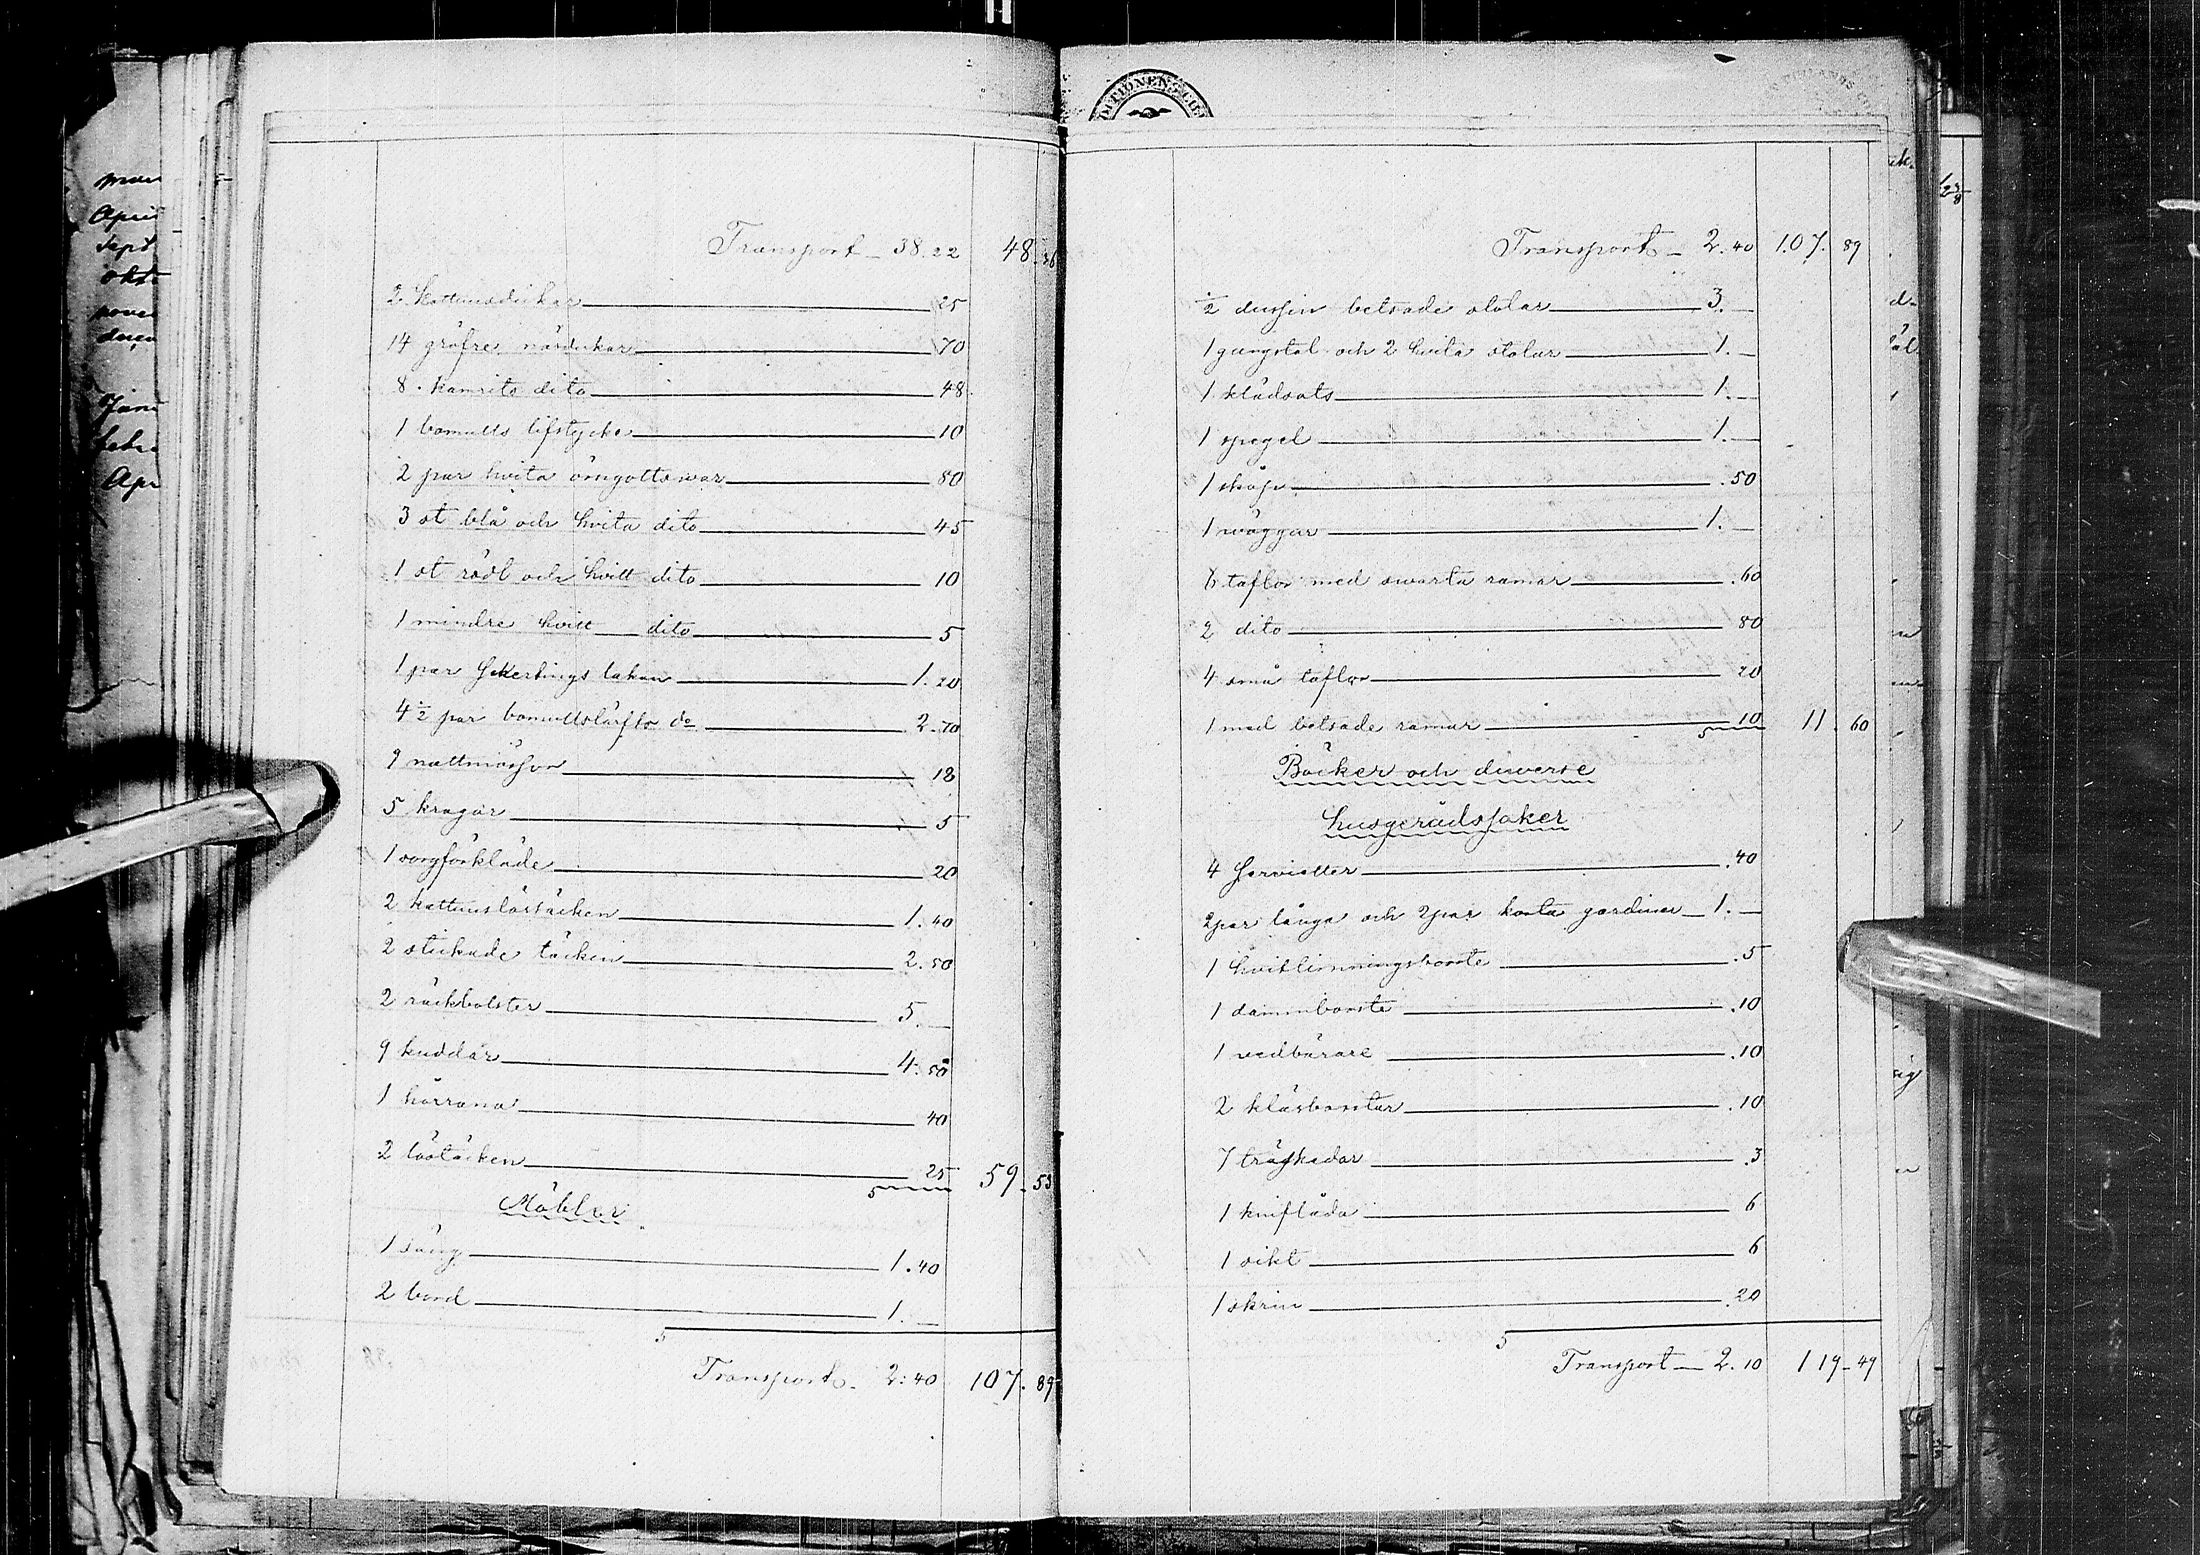 Transport 38.22 48.36
2 Kattunsdukar 25
14 gröfre näsdukar 70
8. kamrits dito 48
1 bomulls lifstycke 10
2 par hvita örngottsvar 80
3 st blå och hvita dito 45
1 st rödt och hvitt dito 10
1 mindre hvitt dito 5
1 par Skertings lakan 1.20
4 ½ par bomullslärfts do 2.70
9 nattmössor 18
5 kragar 5
1 sorgförkläde 20
2 kattunslöstäcken 1.40
2 stickade täcken 2.50
2 räckbolster 5.
9 kuddar 4.50
1 40
2 löstäcken 25 59.53
Möbler
1 säng 1.40
2 bord 1.
Transport 2:40 107.89
Transport 2.40 107.89
½ dussin betsade stolar 3.
1 gungstol och 2 hvita stolar 1.
1 klädsots 1.
1 spegel 1.
1 skåp .50
1 wäggur 1.
6 taflor med swarta ramar .60
2 dito 80
4 små taflor 20
1 med betsade ramar 10 11.60
Böcker och diverse
husgerådssaker
4 Servietter .40
2 par långa och 2 par korta gardiner 1.
1 hvitlimningsborste .5
1 dammborste .10
1 vedbärare .10
2 klädborstar .10
7 träskedar .3
1 kniflåda 6
1 sikt 6
1 skrin 20
Transport 2.10 119.49